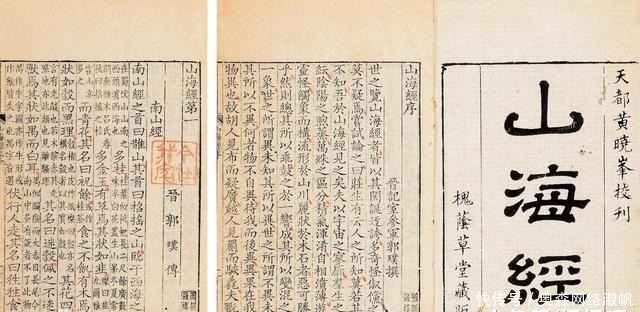 天都黄曉峯校刊
山海經
槐蔭草堂藏版
山海經序
晉記室參軍郭璞撰
世之覽山海經者皆以其閎誕迂誇多奇怪俶儻
莫不疑焉嘗試論之曰莊生有云人之所知莫若其
不知吾於山海經見之矣夫以宇宙之寥廓羣生之
紜陰陽之煦蒸萬殊之區分精氣渾淆自相濆薄遊
靈怪觸象而構流形於山川麗狀於木石者惡可勝
乎然則總其所以乖鼓之於一響成其所以變混之
一象世之所謂異未知其所以異世之所謂不異未
其所以不異何者物不自異待我而後異異果在我
物異也故胡人見布而疑黂越人見罽而駭毳夫翫
山海經第一
南山經
晉 郭璞傳
南山經之首曰䧿山其首曰招搖之山臨于西海之
在蜀伏山山南之西頭濱西海也 多桂
多金玉有草焉其狀如韭
而青花其名曰祝餘 食之不飢有木焉
狀如穀而黑理 其花四
其名曰迷穀佩之不迷
獸焉其狀如禺而白耳
伏行人走其名曰狌狌食
快传号/奥森网络淑帆